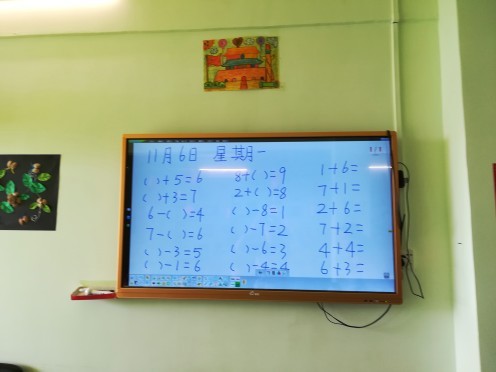 11月6日 星期一
( )+5=6 8+( )=9 1+6=
( )+3=7 2+( )=8 7+1=
6-( )=4 ( )-8=1 2+6=
7-( )=6 ( )-7=2 7+2=
( )-3=5 ( )-6=3 4+4=
( )-1=6 ( )-4=4 6+3=